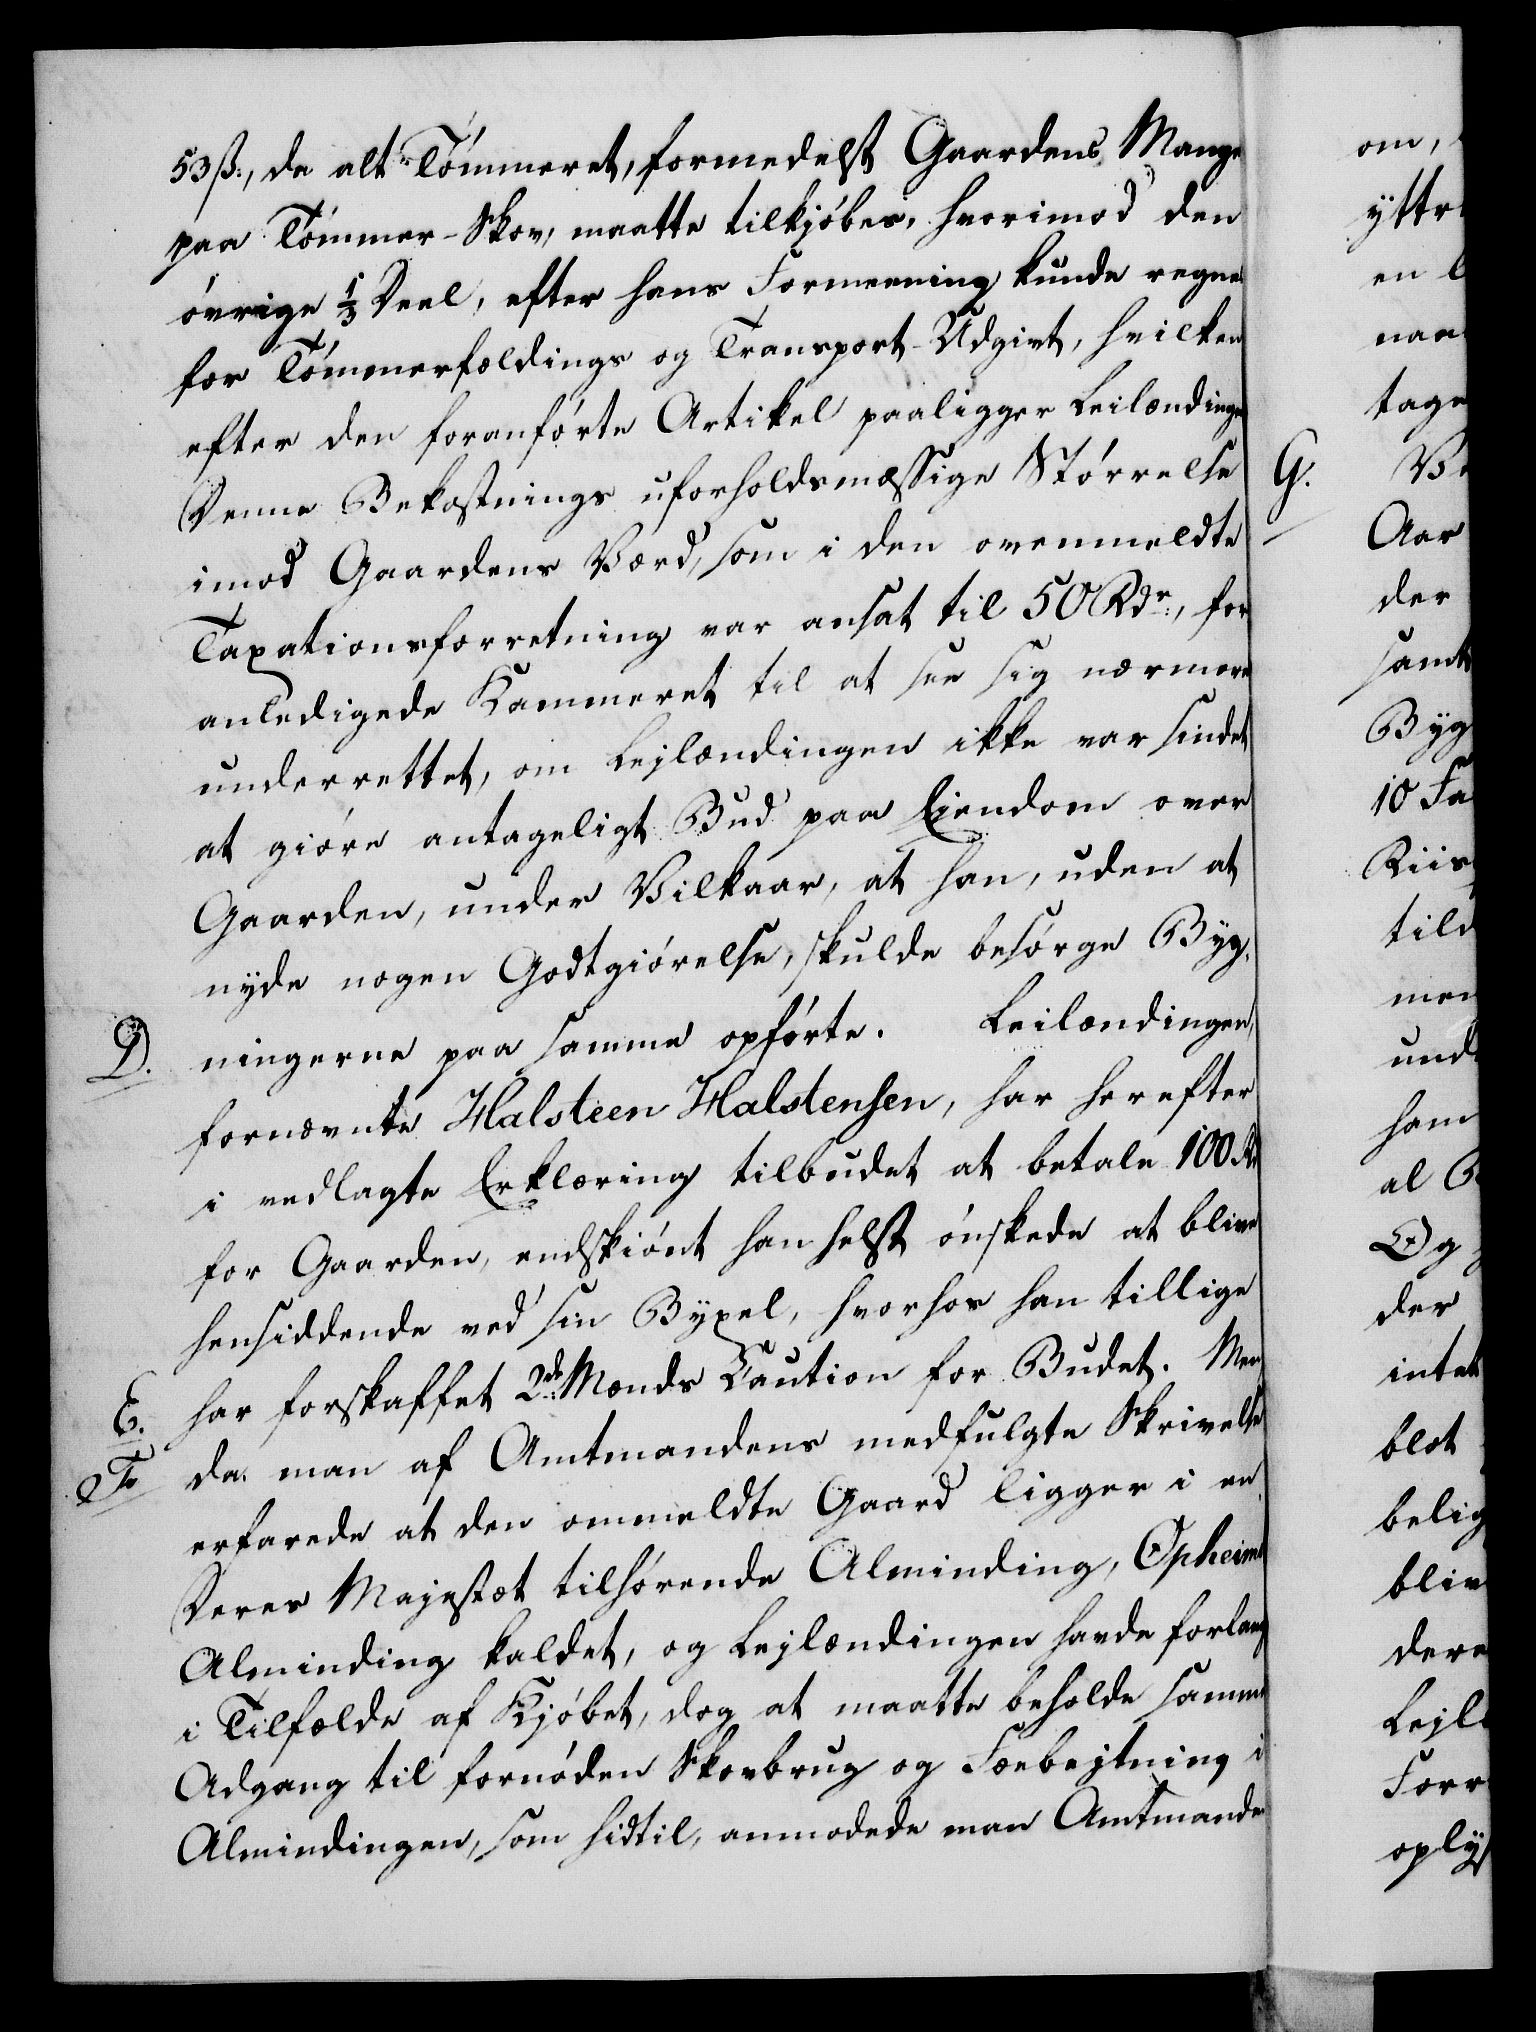 53 ß:, da alt Tömmeret, formedelst Gaardens Mange
paa Tömmer-Skov, maatte tilkjöbes, hvorimod den
övrige 1/3 Deel, efter hans Formeening kunde regne
for Tömmerfældings og Transport-Udgivt, hvilken
efter den foranförte Artikel paaligger Leilændinge
Denne Bekostnings uforholdsmæssige Störrelse
imod Gaardens Værd, som i den ovenmeldte
Taxationsforretning var ansat til 50 Rdr:, for
anledigede Kammeret til at see sig nærmere
underrettet, om Lejlændingen ikke var sindet
at giöre antageligt Bud paa Ejendom over
Gaarden, under Vilkaar, at han, uden at
nyde nogen Godtgiörelse, skulde besörge Byg-
D. ningerne paa samme opförte. Leilændingen,
fornævnte Halsteen Halstensen, har herefter
i vedlagte Erklæring tilbudet at betale 100 R
for Gaarden, endskiönt han helst önskede at blive
hensiddende ved sin Byxel, hvorhos han tillige
E. har forskaffet 2de Mænds Caution for Budet. Men
F. da man af Amtmandens medfulgte Skrivelse
erfarede at den ommeldte Gaard ligger i en
Deres Majestæt tilhörende Alminding, Opheims
Alminding kaldet, og Lejlændingen havde forlang
i Tilfælde af Kjöbet, dog at maatte beholde samme
Adgang til fornöden Skovbrug og Fæebejtning i
Almindingen, som hidtil, anmodede man Amtmande
om,
yttr
en
naa
tage
G. Ve
Aar
der
samt
Byg
10 Fa
Riis
til
men
und
ham
al
Og
der
intet
blot
belig
bliv
dere
Lejl
Forr
oplys